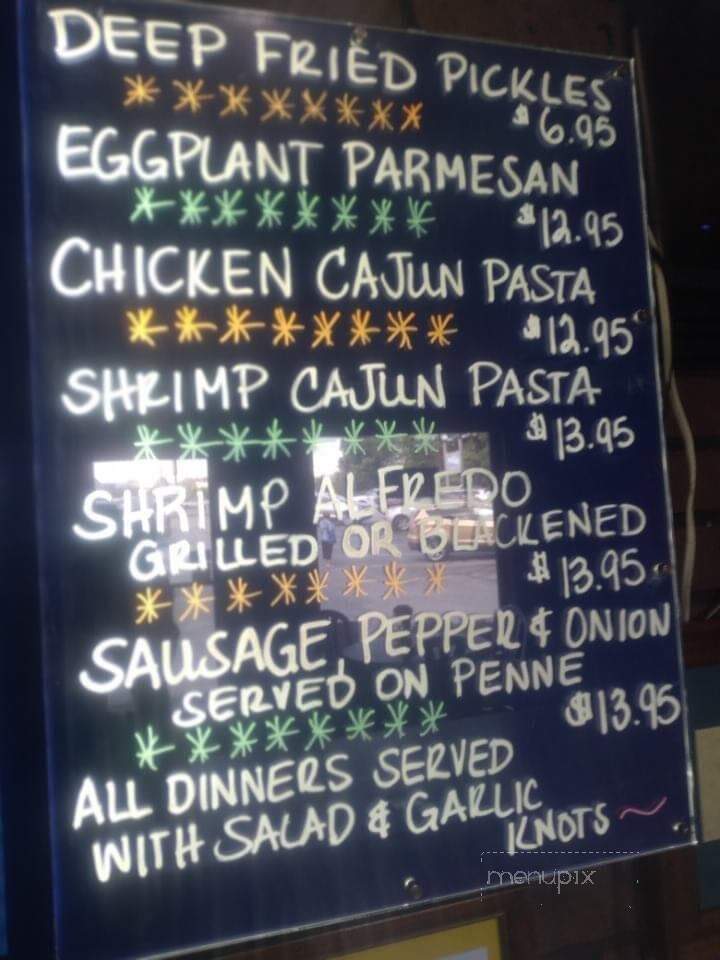 DEEP FRIED PICKLES
$6.95
EGGPLANT PARMESAN
$12.95
CHICKEN CAJUN PASTA
$12.95
SHRIMP CAJUN PASTA
$13.95
SHRIMP ALFREDO
GRILLED OR BLACKENED
$13.95
SAUSAGE, PEPPER & ONION
SERVED ON PENNE
$13.95
ALL DINNERS SERVED
WITH SALAD & GARLIC
KNOTS ~
menupix